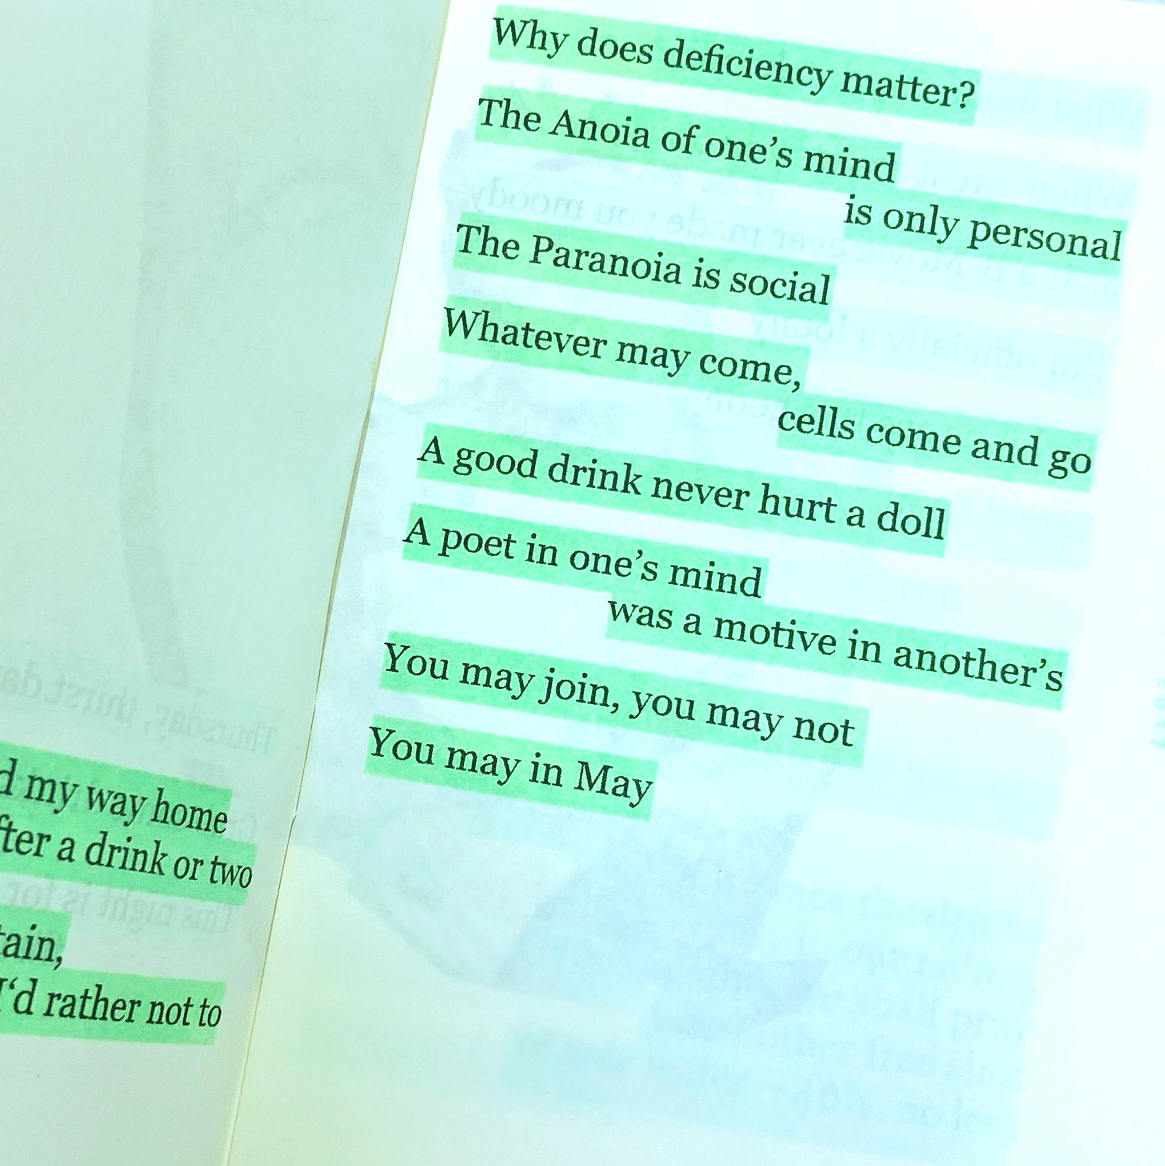 d my way home
fter a drink or two
tain,
I‘d rather not to
Why does deficiency matter?
The Anoia of one’s mind
is only personal
The Paranoia is social
Whatever may come,
cells come and go
A good drink never hurt a doll
A poet in one’s mind
was a motive in another’s
You may join, you may not
You may in May